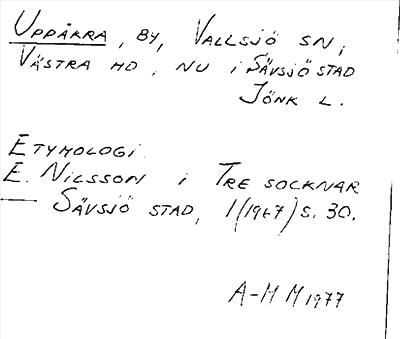 UPPÅKRA, BY, VALLSJÖ SN,
VÄSTRA HD, NU i SÄVSJÖ STAD
JÖNK L.
ETYMOLOGI.
E. NILSSON i TRE SOCKNAR
— SÄVSJÖ STAD, 1(1967) S. 30.
A-M M 1977